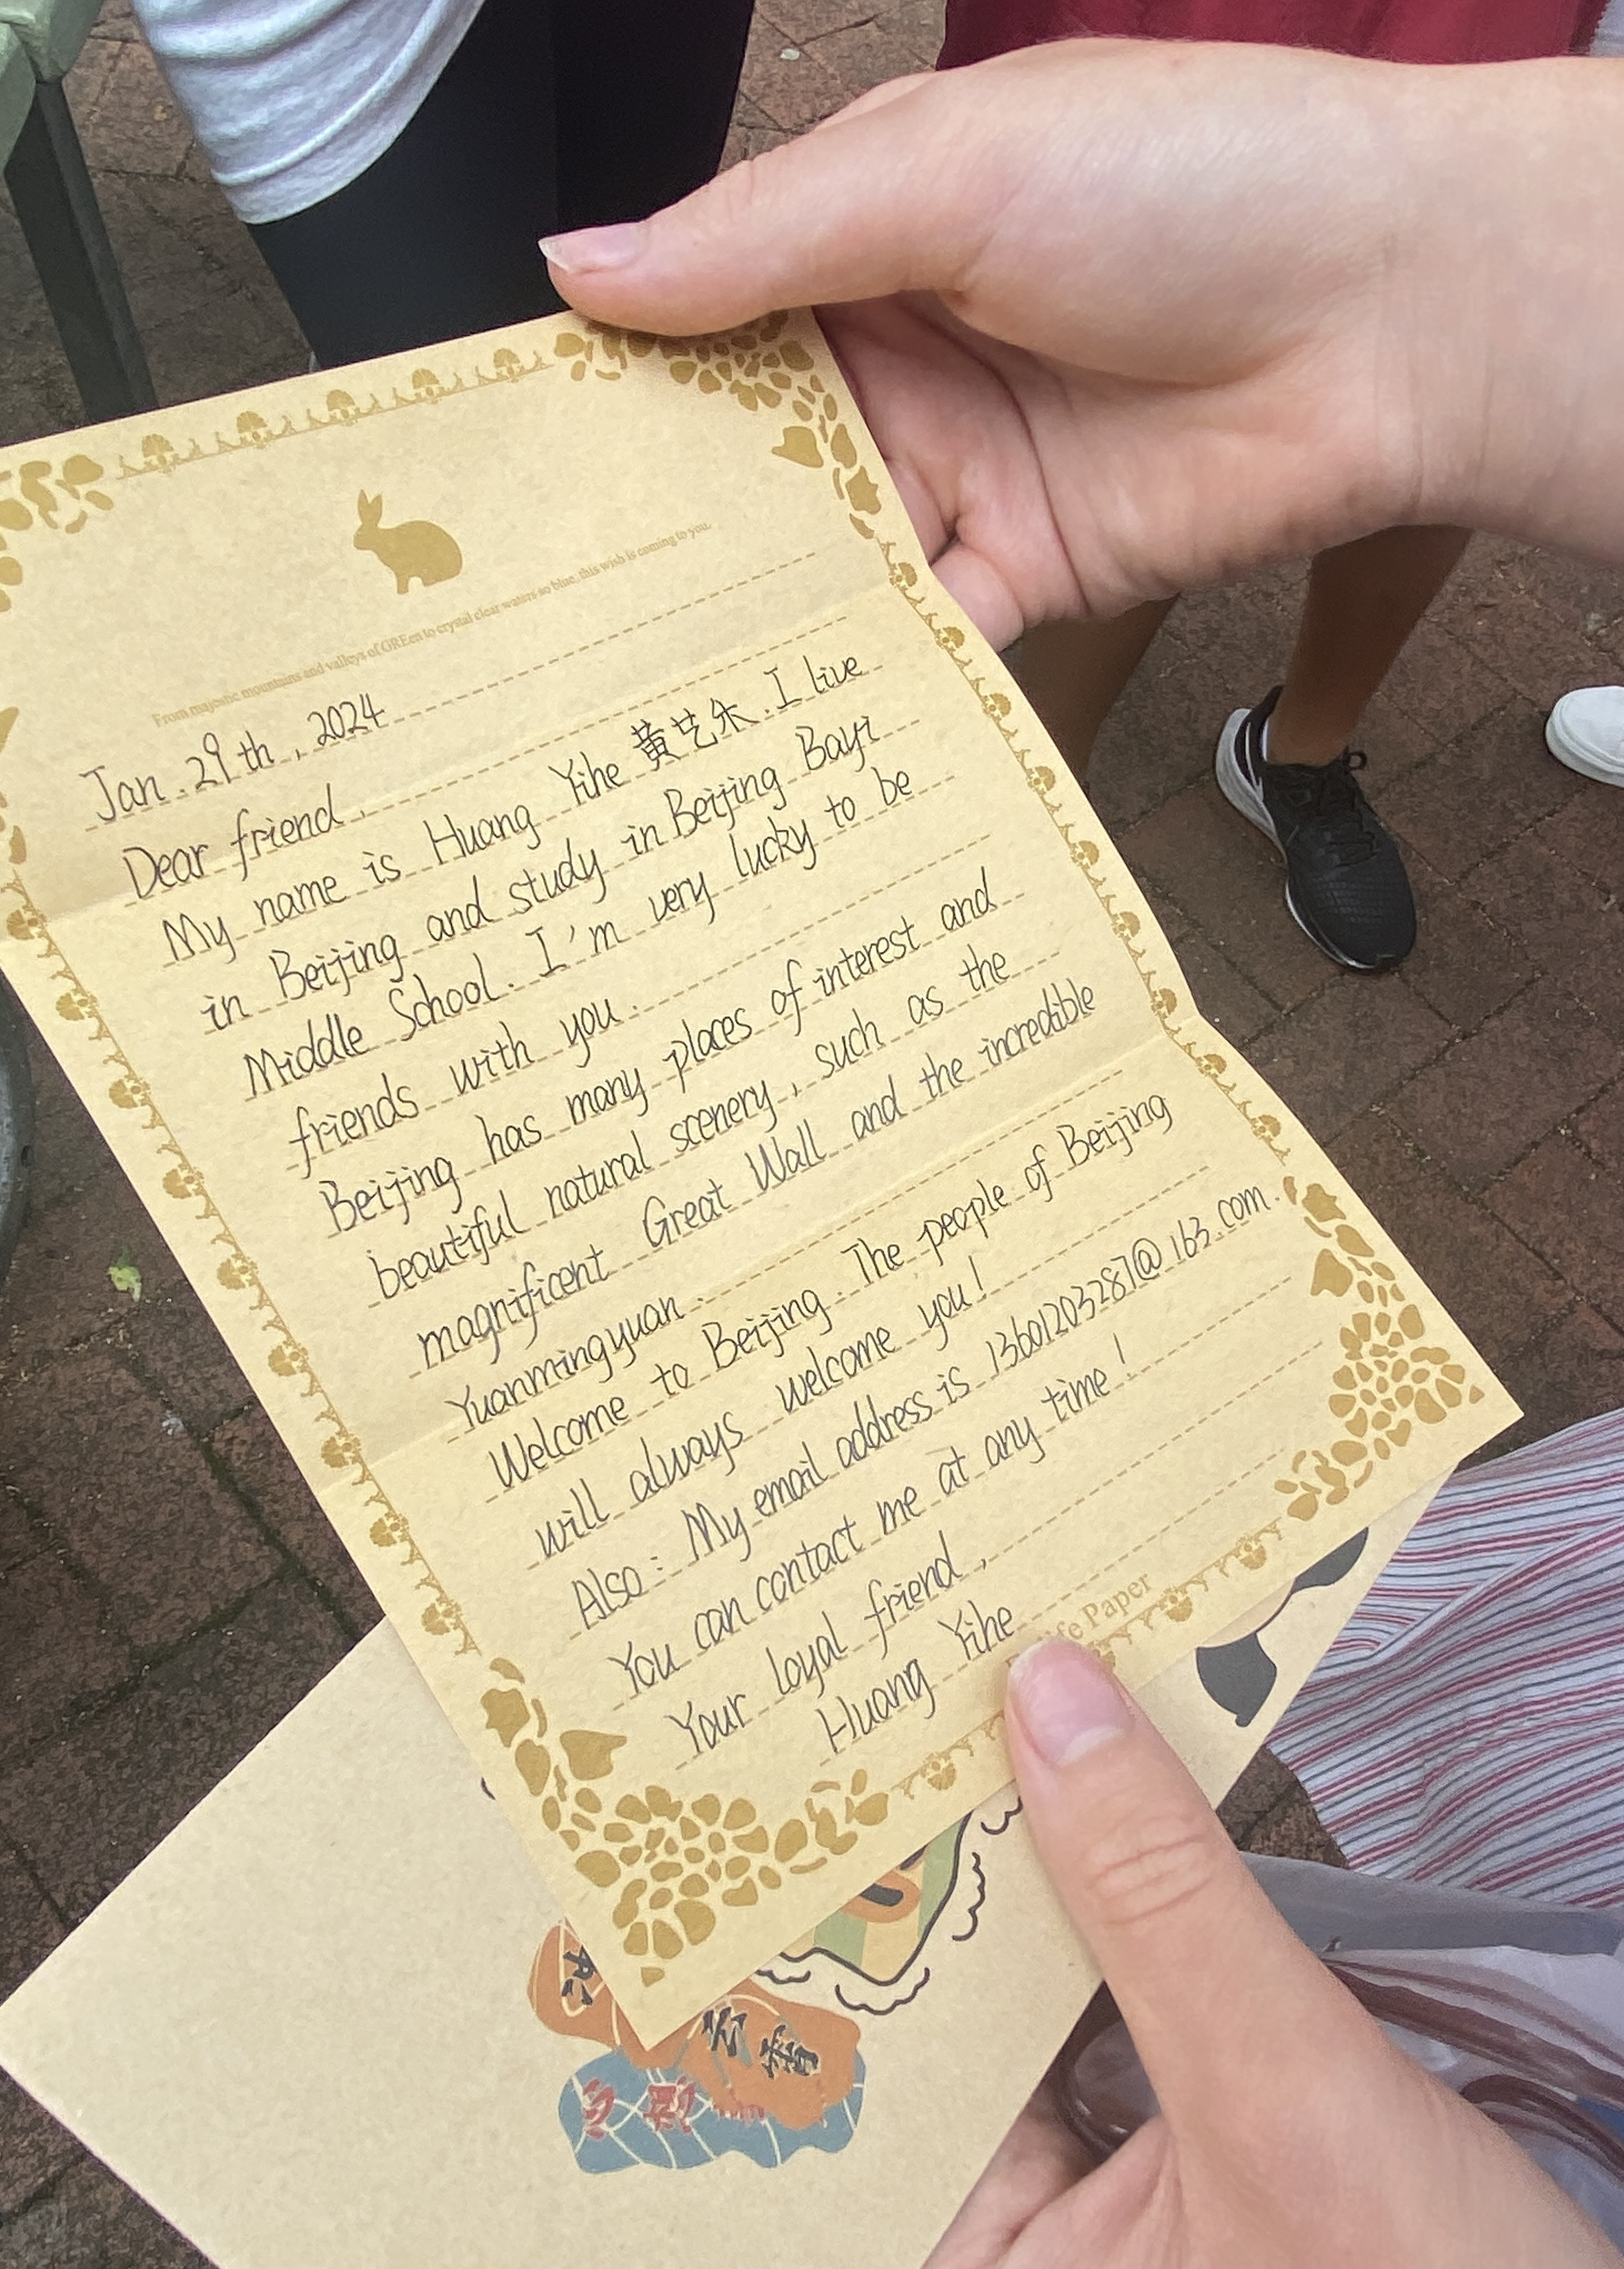 From majestic mountains and valleys of GREen to crystal clear waters so blue, this wish is coming to you.
Jan. 29th, 2024
Dear friend,
My name is Huang Yihe 黄艺禾. I live
in Beijing and study in Beijing Bayi
Middle School. I'm very lucky to be
friends with you.
Beijing has many places of interest and
beautiful natural scenery, such as the
magnificent Great Wall and the incredible
Yuanmingyuan.
Welcome to Beijing. The people of Beijing
will always welcome you!
Also: My email address is 13601203287@163.com.
You can contact me at any time!
Your loyal friend,
Huang Yihe
Paper